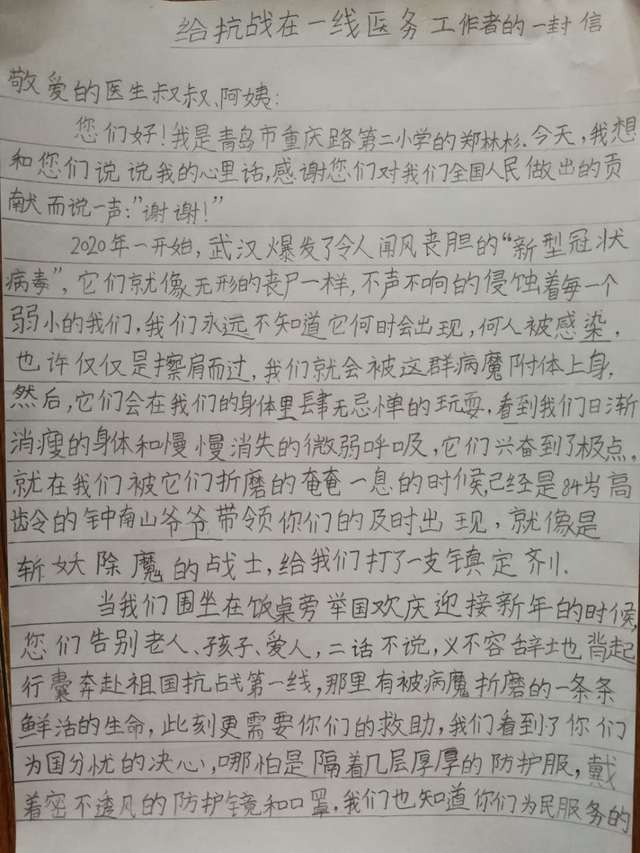 给抗战在一线医务工作者的一封信
敬爱的医生叔叔、阿姨：
您们好！我是青岛市重庆路第二小学的郑林杉.今天，我想
和您们说说我的心里话，感谢您们对我们全国人民做出的贡
献而说一声：”谢谢！”
2020年一开始，武汉爆发了令人闻风丧胆的“新型冠状
病毒”，它们就像无形的丧尸一样，不声不响的侵蚀着每一个
弱小的我们，我们永远不知道它何时会出现，何人被感染，
也许仅仅是擦肩而过，我们就会被这群病魔附体上身.
然后，它们会在我们的身体里肆无忌惮的玩耍，看到我们日渐
消瘦的身体和慢慢消失的微弱呼吸，它们兴奋到了极点，
就在我们被它们折磨的奄奄一息的时候，已经是84岁高
龄的钟南山爷爷带领你们的及时出现，就像是
斩妖除魔的战士，给我们打了一支镇定剂.
当我们围坐在饭桌旁举国欢庆迎接新年的时候，
您们告别老人、孩子、爱人，二话不说，义不容辞地背起
行囊奔赴祖国抗战第一线，那里有被病魔折磨的一条条
鲜活的生命，此刻更需要你们的救助，我们看到了你们
为国分忧的决心，哪怕是隔着几层厚厚的防护服，戴
着密不透风的防护镜和口罩，我们也知道你们为民服务的